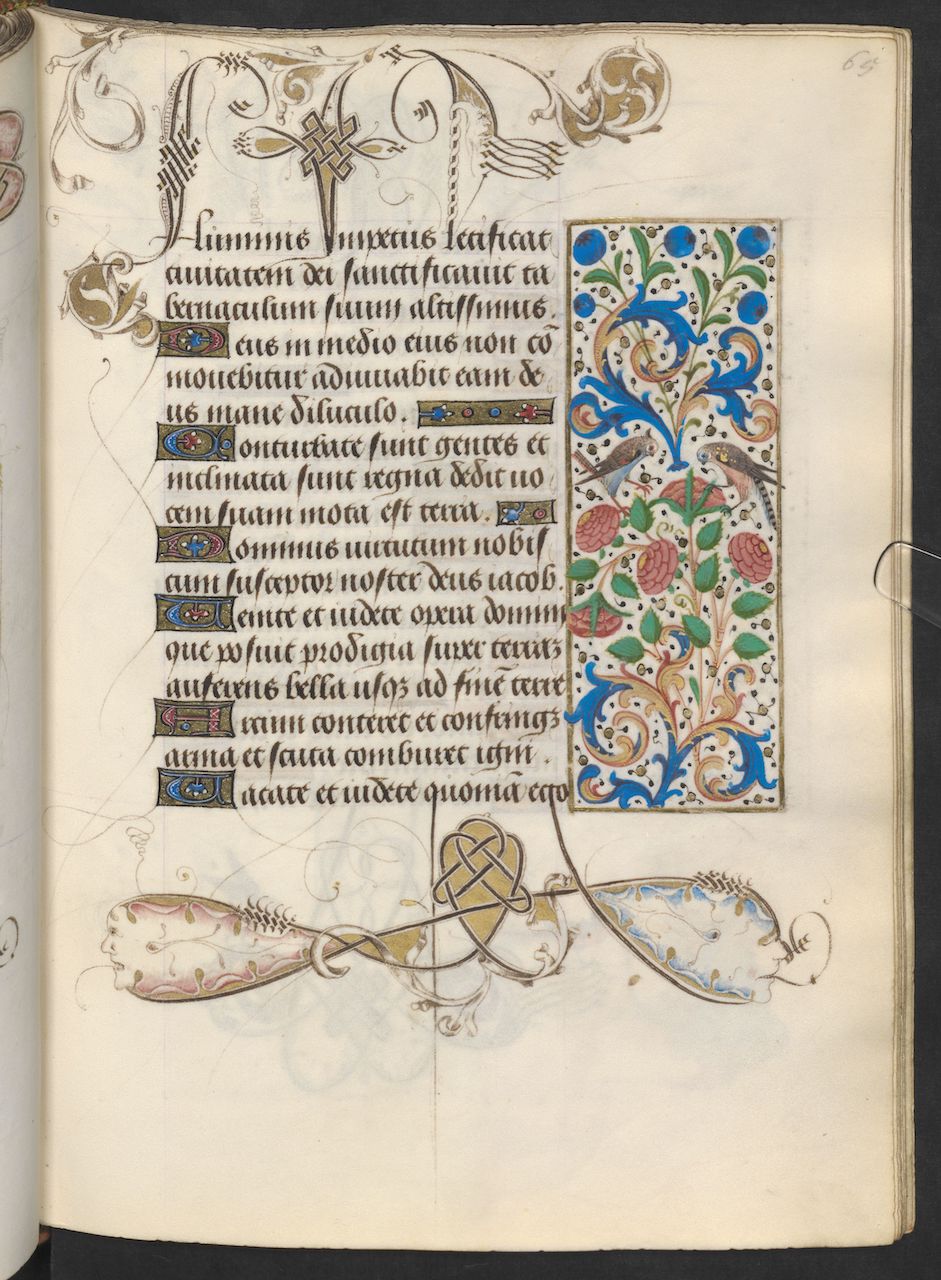 65
Fluminis impetus letificat
ciuitatem dei sanctificauit ta
bernaculum suum altissimus.
Deus in medio eius non cō
mouebitur adiuuabit eam de
us mane diluculo.
Conturbate sunt gentes et
inclinata sunt regna dedit uo
cem suam mota est terra.
Dominus uirtutum nobis
cum susceptor noster deus iacob.
Uenite et uidete opera domini
que posuit prodigia super terraꝫ
auferens bella usqꝫ ad finē terre
Arcum conteret et confringꝫ
arma et scuta comburet igni.
Uacate et uidete quoniā ego